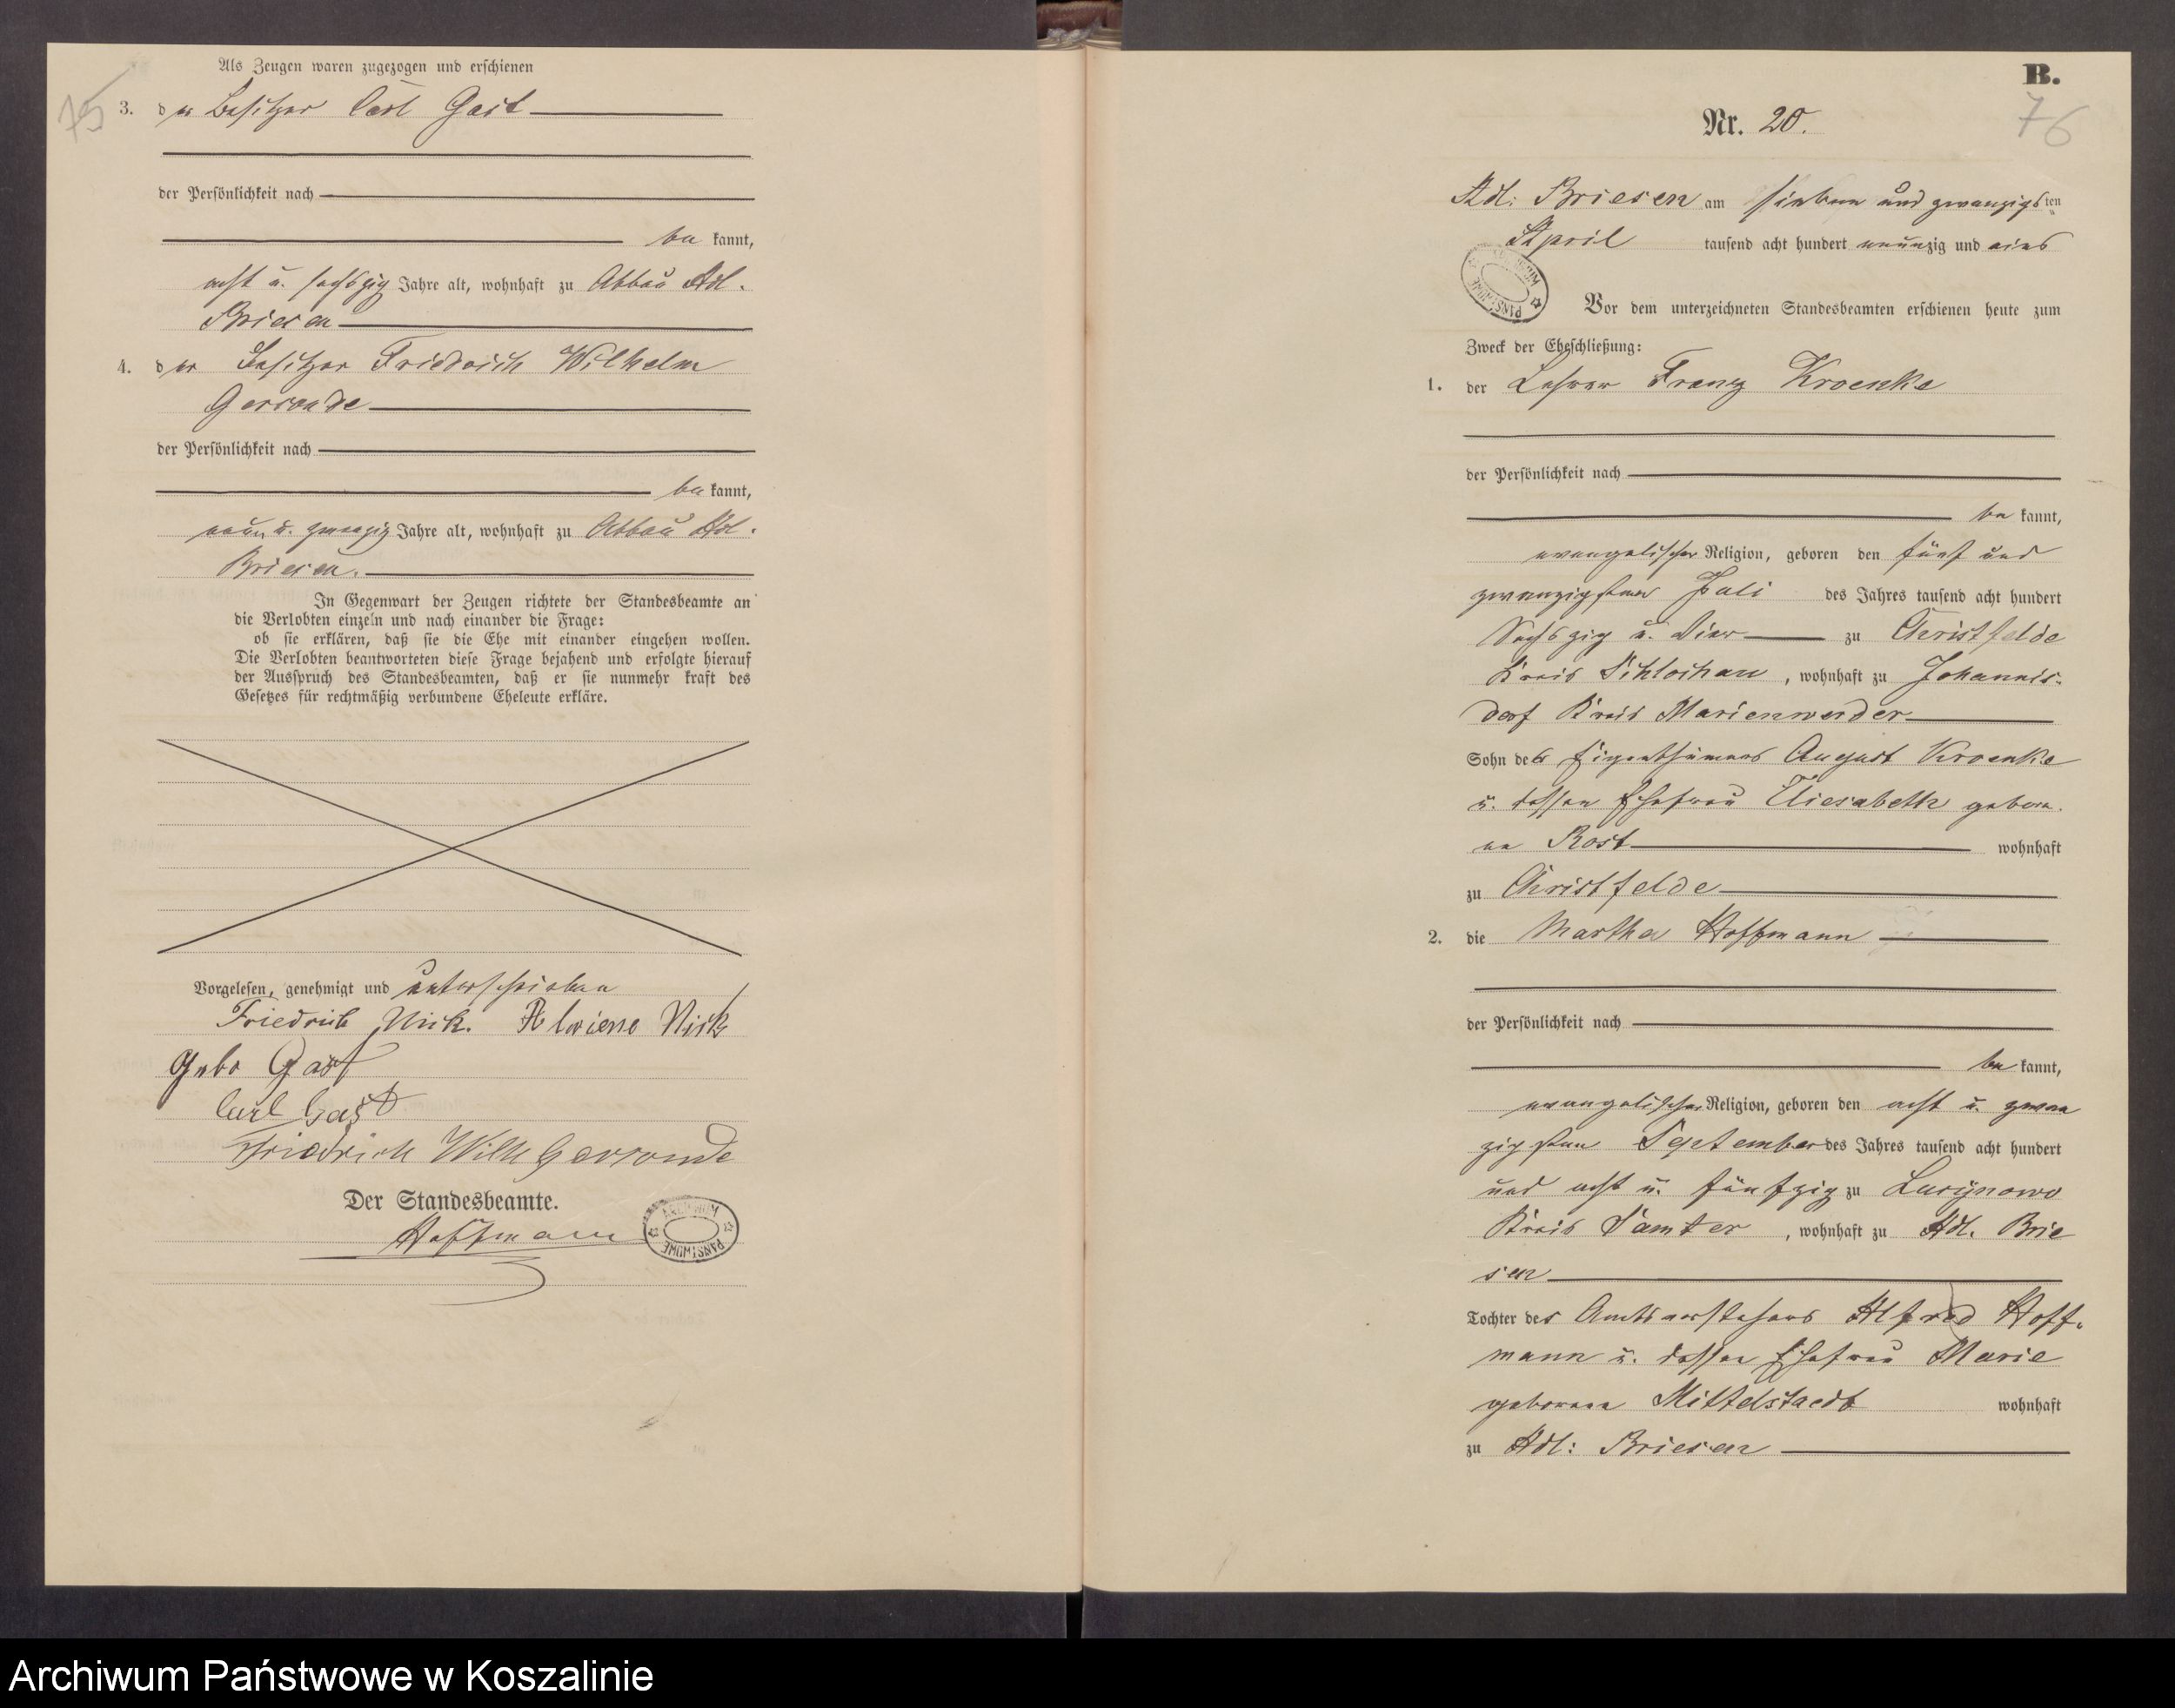 75
Als Zeugen waren zugezogen und erschienen
3. der Besitzer Carl Gast
der Persönlichkeit nach
be kannt,
acht u. sechszig Jahre alt, wohnhaft zu Abbau Adl.
Briesen
4. der Besitzer Friedrich Wilhelm
Gerronde
der Persönlichkeit nach
be kannt,
neun u. zwanzig Jahre alt, wohnhaft zu Abbau Adl.
Briesen.
In Gegenwart der Zeugen richtete der Standesbeamte an
die Verlobten einzeln und nach einander die Frage:
ob sie erklären, daß sie die Ehe mit einander eingehen wollen.
Die Verlobten beantworteten diese Frage bejahend und erfolgte hierauf
der Ausspruch des Standesbeamten, daß er sie nunmehr kraft des
Gesetzes für rechtmäßig verbundene Eheleute erkläre.
Vorgelesen, genehmigt und unterschrieben
Friedrich Nick
Gebo Gast
Carl Gast
Friedrich Wilh Gerronde
Der Standesbeamte.
Hoffmann
ARCHIWUM PAŃSTWOWE
B.
76
Nr. 20.
Adl: Briesen am sieben und zwanzigsten
April tausend acht hundert neunzig und eins
ARCHIWUM PAŃSTWOWE
Vor dem unterzeichneten Standesbeamten erschienen heute zum
Zweck der Eheschließung:
1. der Lehrer Franz Kroenke
der Persönlichkeit nach
be kannt,
evangelischer Religion, geboren den fünf und
zwanzigsten Juli des Jahres tausend acht hundert
Sechszig u. Vier zu Christfelde
Kreis Schlochau, wohnhaft zu Johannis-
dorf Kreis Marienwerder
Sohn des Eigenthümers August Kroenke
u. dessen Ehefrau Eliesabeth gebore-
ne Rost wohnhaft
zu Christfelde
2. die Martha Hoffmann
der Persönlichkeit nach
be kannt,
evangelischer Religion, geboren den acht u. zwan
zigsten September des Jahres tausend acht hundert
und acht u. fünfzig zu
Kreis Samter, wohnhaft zu Adl. Brie
sen
Tochter des Amtsvorstehers Alfred Hoff-
mann u. dessen Ehefrau Marie
geborene Mittelstaedt wohnhaft
zu Adl: Briesen
Archiwum Państwowe w Koszalinie